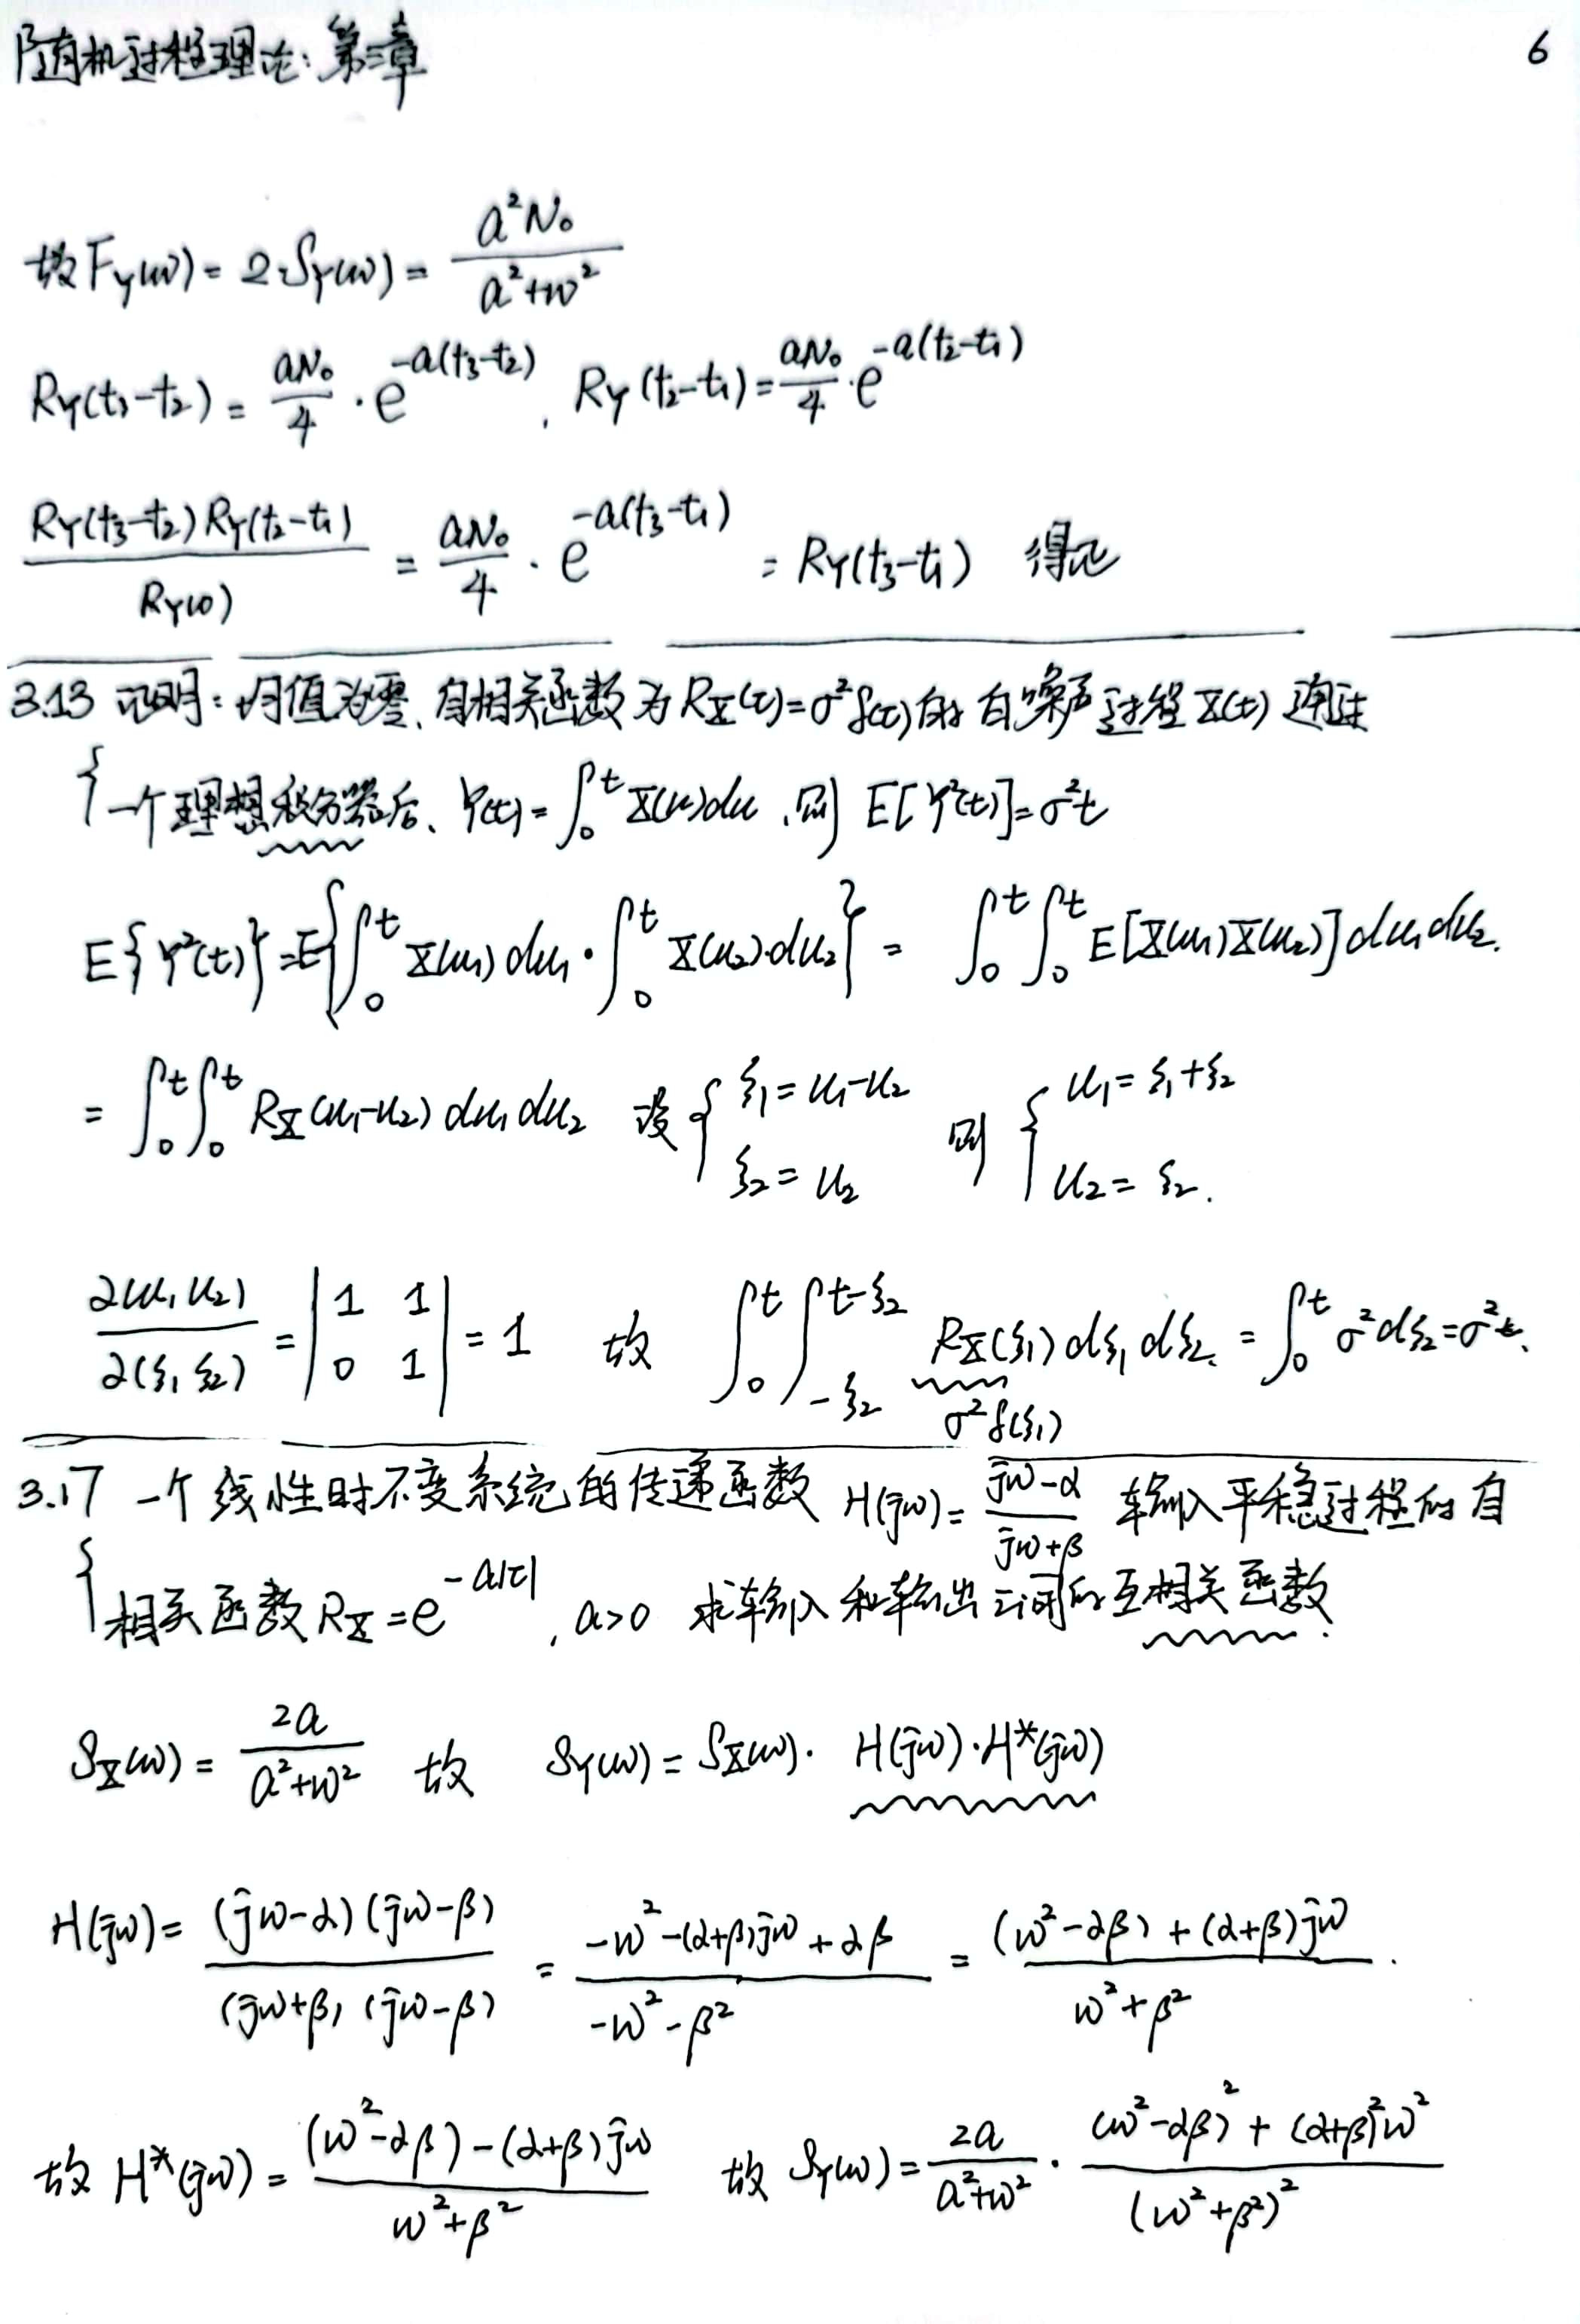 随机过程理论:第三章 6
故 F_Y(ω) = 2·S_Y(ω) = a²N₀ / (a²+ω²)
R_Y(t₃-t₂) = aN₀/4 · e^{-a(t₃-t₂)}, R_Y(t₂-t₁) = aN₀/4 · e^{-a(t₂-t₁)}
R_Y(t₃-t₂) R_Y(t₂-t₁) / R_Y(0) = aN₀/4 · e^{-a(t₃-t₁)} = R_Y(t₃-t₁) 得证
3.13 证明:均值为零、自相关函数为 R_X(τ)=σ²δ(τ) 的白噪声过程 X(t) 通过
{ 一个理想积分器后、Y(t) = ∫₀^t X(u)du, 则 E[Y²(t)] = σ²t
E{Y²(t)} = E{∫₀^t X(u₁)du₁ · ∫₀^t X(u₂)·du₂} = ∫₀^t ∫₀^t E[X(u₁)X(u₂)] du₁du₂.
= ∫₀^t ∫₀^t R_X(u₁-u₂) du₁du₂ 设 { ξ₁ = u₁-u₂ ξ₂ = u₂ 则 { u₁ = ξ₁+ξ₂ u₂ = ξ₂.
∂(u₁ u₂)/∂(ξ₁ ξ₂) = | 1 1 0 1 | = 1 故 ∫₀^t ∫_{-ξ₂}^{t-ξ₂} R_X(ξ₁) dξ₁ dξ₂ = ∫₀^t σ² dξ₂ = σ²t.
σ²δ(ξ₁)
3.17 一个线性时不变系统的传递函数 H(jω) = (jω-α)/(jω+β) 输入平稳过程的自
{ 相关函数 R_X = e^{-a|τ|}, a>0 求输入和输出之间的互相关函数.
S_X(ω) = 2a/(a²+ω²) 故 S_Y(ω) = S_X(ω)· H(jω)·H*(jω)
H(jω) = (jω-α)(jω-β) / (jω+β)(jω-β) = (-ω²-(α+β)jω+αβ) / (-ω²-β²) = ((ω²-αβ)+(α+β)jω) / (ω²+β²).
故 H*(jω) = ((ω²-αβ)-(α+β)jω) / (ω²+β²) 故 S_Y(ω) = 2a/(a²+ω²) · ((ω²-αβ)²+(α+β)²ω²) / (ω²+β²)²